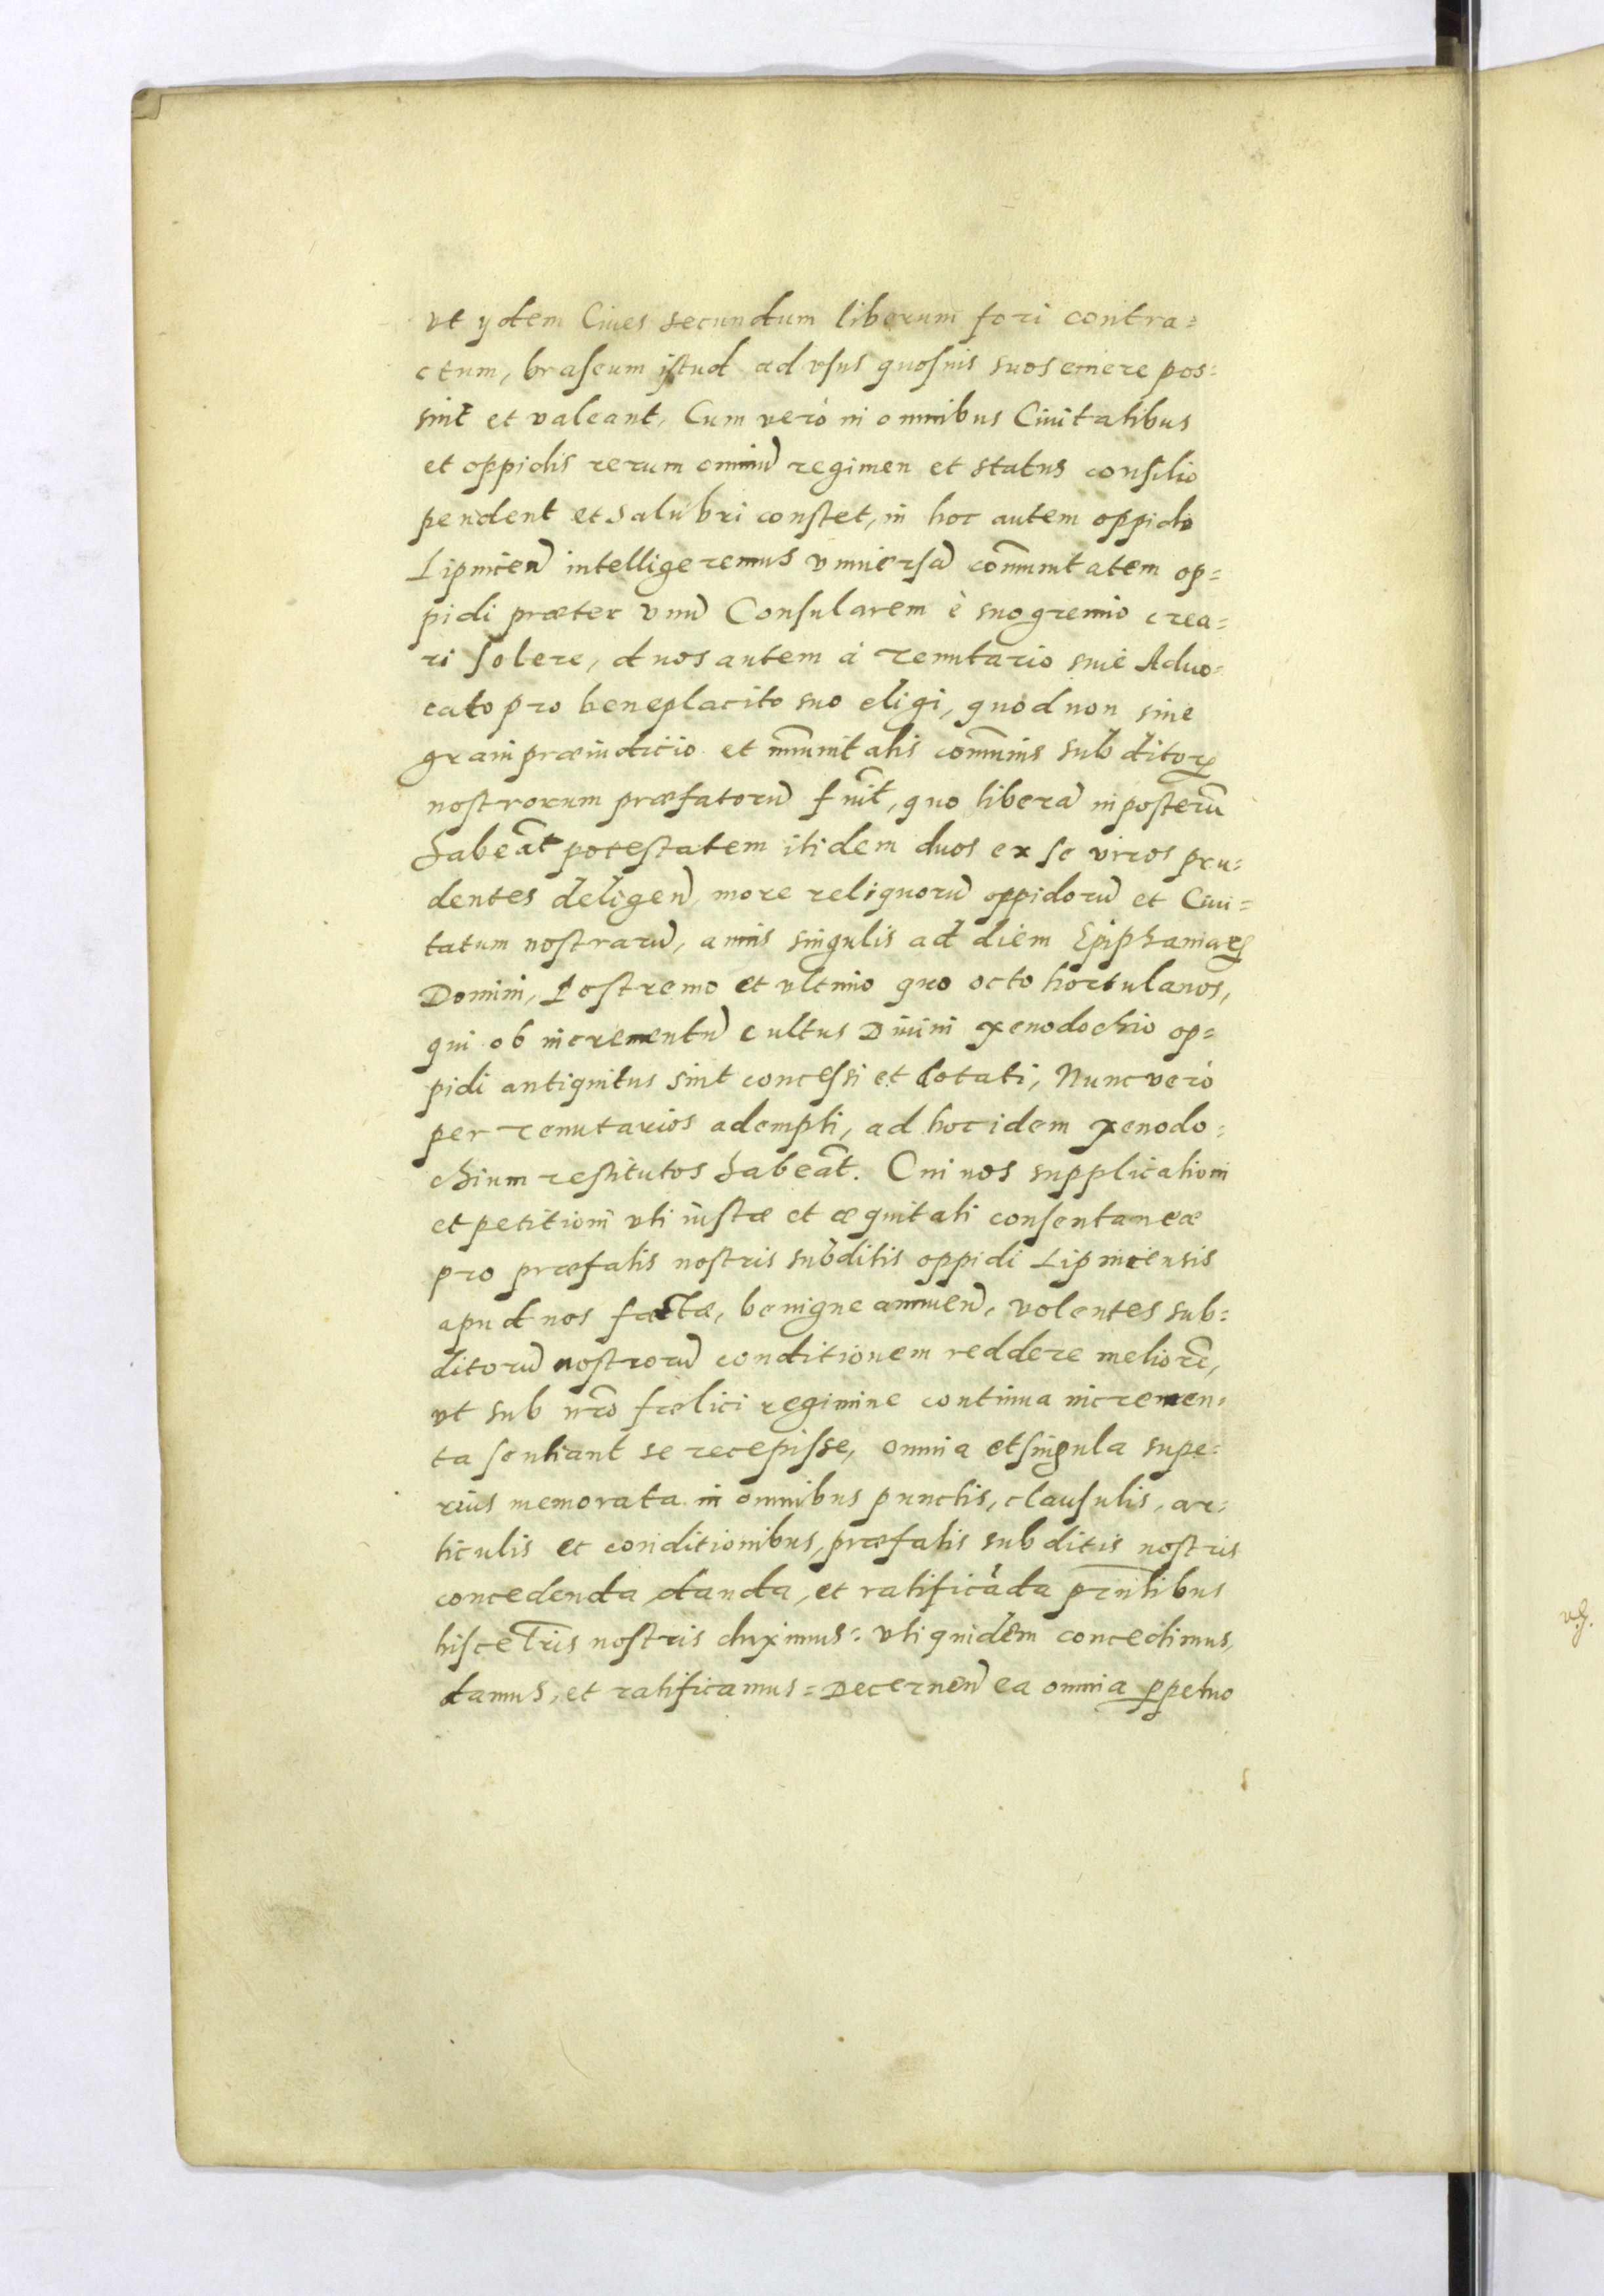 vt ydem Ciues secundum liberum fori contra=
ctum, braseum istud ad vsus quosuis suos emere pos=
sint et valeant, Cum verò in omnibus Ciuitatibus
et oppidis rerum omniũ regimen et status consilio
pendent et salubri constet, in hoc autem oppido
Lipnicen̄ intelligeremus vniuersã com̄unitatem op=
pidi præter vnũ Consularem è suo gremio crea=
ri solere, duos autem à tenutario siue Aduo=
cato pro beneplacito suo eligi, quod non sine
graui præiudicio et im̄unitatis com̄unis subditorꝝ
nostrorum præfatorũ fuit, quo liberã in posterũ
habeãt potestatem itidem duos ex se viros pru=
dentes deligen̄, more reliquorũ oppidorũ et Ciui=
tatum nostrarũ, annis singulis ad diem Epiphaniarꝝ
Domini, Postremo et vltimo quo octo hortulanos,
qui ob incrementũ cultus Diuini xenodochio op=
pidi antiquitus sint concessi et dotati, Nunc verò
per tenutarios adempti, ad hoc idem xenodo=
chium restitutos habeãt. Cui nos supplicationi
et petitioni vti iustæ et æquitati consentaneæ
pro præfatis nostris subditis oppidi Lipnicensis
apud nos factæ, benigne annuen̄, volentes sub=
ditorũ nostrorũ conditionem reddere meliorẽ,
vt sub nr̃o fælici regimine continua incremen=
ta sentiant se recepisse, omnia et singula supe=
rius memorata in omnibus punctis, clausulis, ar=
ticulis et conditionibus, præfatis subditis nostris
concedenda danda, et ratificãda prñtibus
hisce l̃ris nostris duximus: vti quidem concedimus,
damus, et ratificamus = Decernen̄ ea omnia ꝑpetuo